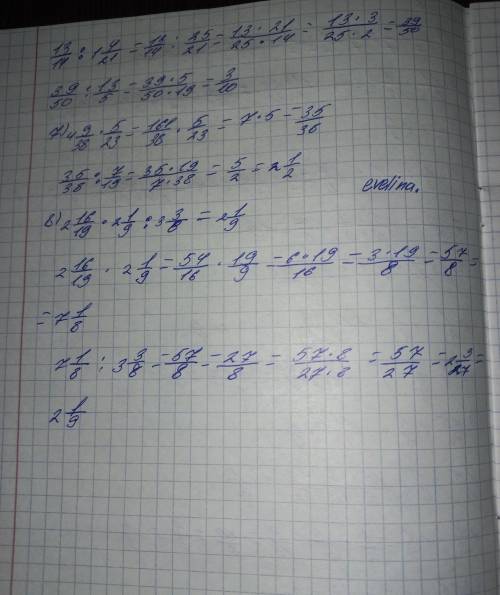 13/14 : 1 4/21 = 13/14 : 25/21 = 13·21/25·14 = 13·3/25·2 = 39/50
39/50 : 13/5 = 39·5/50·13 = 3/10
7) 4 9/38 · 5/23 = 161/38 · 5/23 = 7·5 = 35/36
35/38 : 7/19 = 35·19/7·38 = 5/2 = 2 1/2
evelina.
8) 2 16/19 · 2 1/9 : 3 3/8 = 2 1/9
2 16/19 · 2 1/9 = 54/16 · 19/9 = 6·19/16 = 3·19/8 = 57/8 =
= 7 1/8
7 1/8 : 3 3/8 = 57/8 = 27/8 = 57·8/27·8 = 57/27 = 2 3/27 =
2 1/9